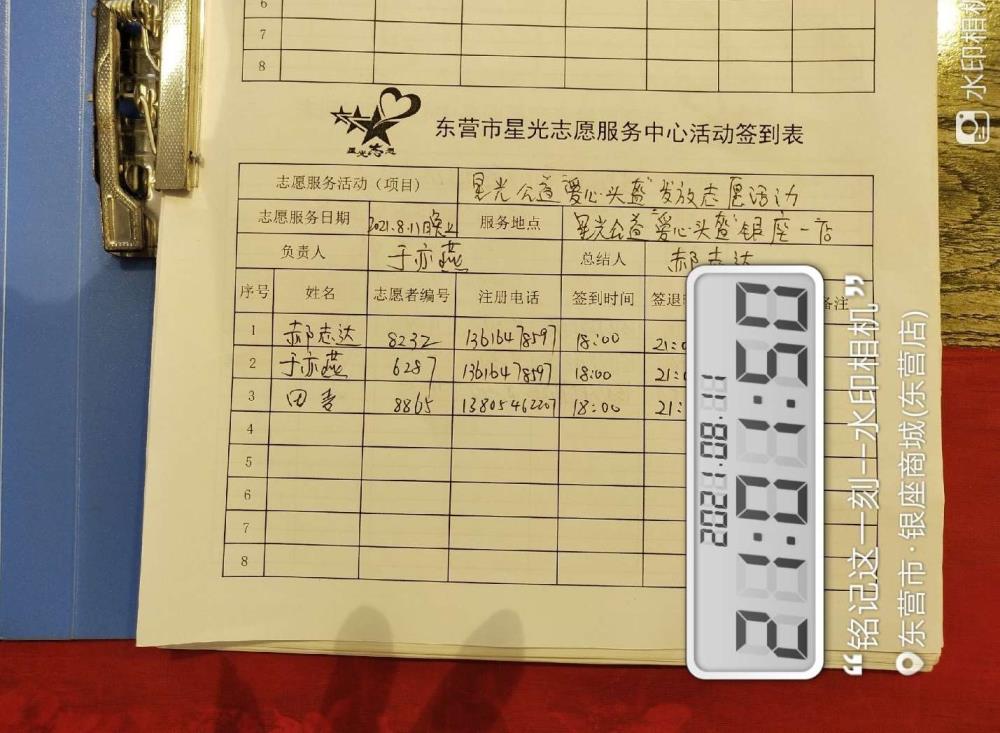 6
7
8
星光志愿
东营市星光志愿服务中心活动签到表
志愿服务活动（项目） 星光公益"爱心头盔"发放志愿活动
志愿服务日期 2021.8.11日晚上 服务地点 星光公益"爱心头盔"银座一店
负责人 于亦燕 总结人 郝志达
序号 姓名 志愿者编号 注册电话 签到时间 签退时 备注
1 郝志达 8232 13616478597 18:00 21:0
2 于亦燕 6287 13616478597 18:00 21:0
3 田麦 8865 13805462207 18:00 21:
4
5
6
7
8
2021.08.11
21:01:50
"铭记这一刻——水印相机"
东营市·银座商城(东营店)
水印相机